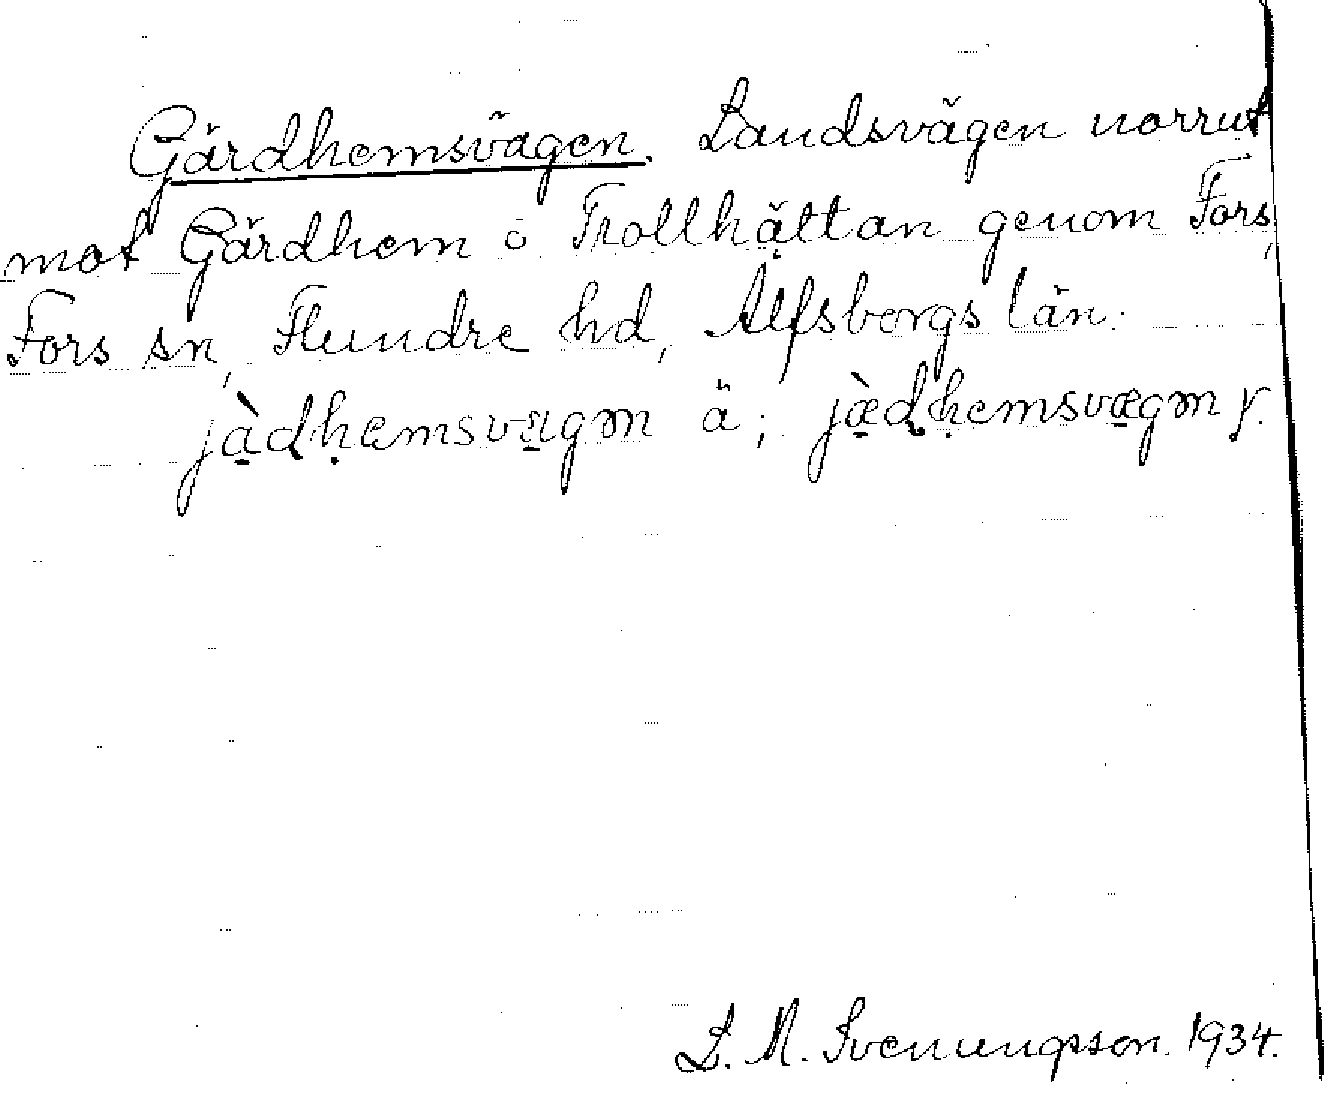 Gärdhemsvägen. Landsvägen norrut
mot Gärdhem o Trollhättan genom Fors,
Fors sn, Flundre hd, Älfsborgs län.
jàdhemsvægən ä; jæ̀dhemsvægən y.
L. M. Svenungsson. 1934.